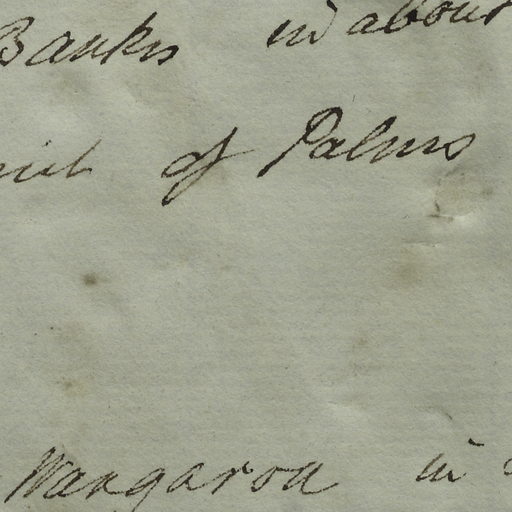 Banks in about
of Palms
Wangaroa in